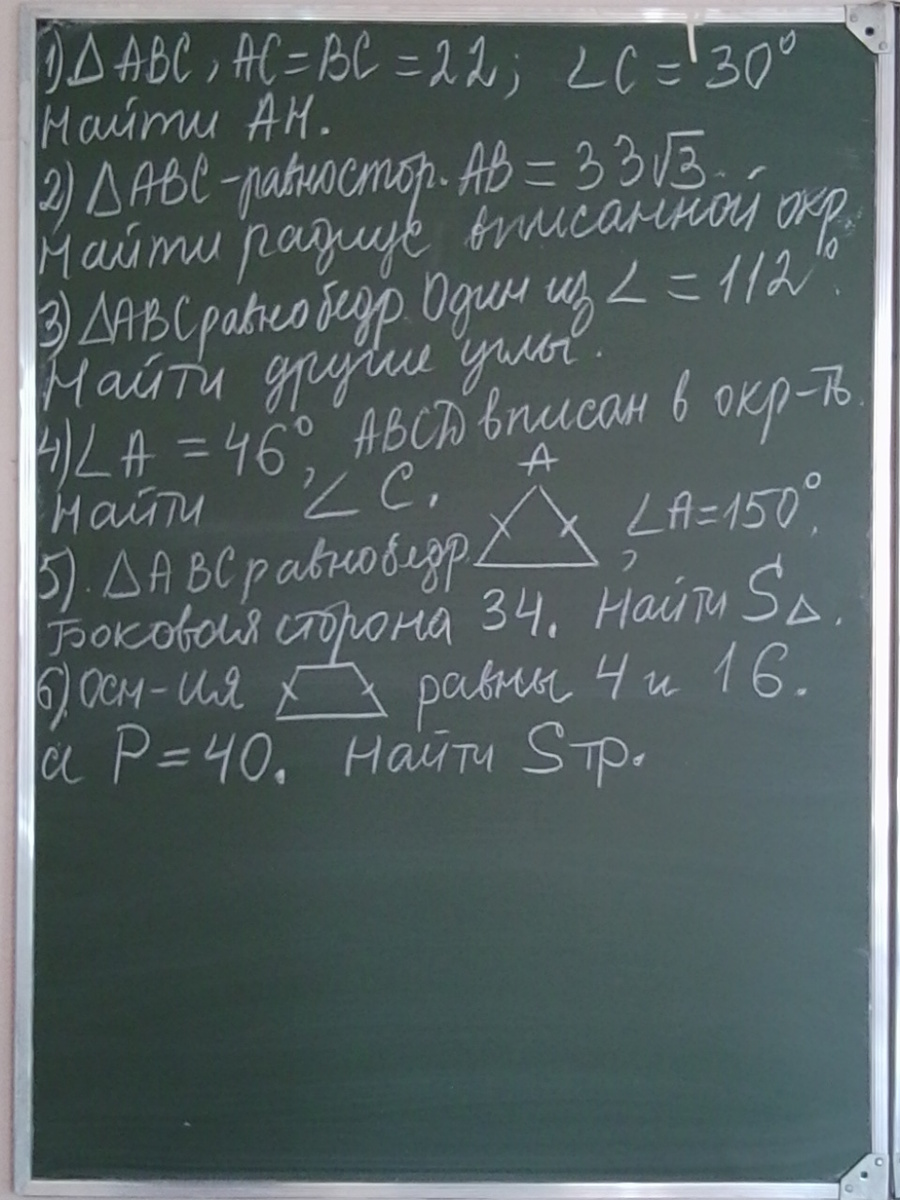 1) △ ABC, AC = BC = 22; ∠C = 30°
Найти AH.
2) △ ABC - равностор. AB = 33√3.
Найти радиус вписанной окр
3) △ABC равнобедр. Один из ∠ = 112°.
Найти другие углы.
4) ∠A = 46°, ABCD вписан в окр-ть.
Найти ∠C.
A
5). △ABC равнобедр. , ∠A = 150°,
Боковая сторона 34. Найти S△.
6) осн-ия равны 4 и 16.
а P = 40. Найти Sтр.